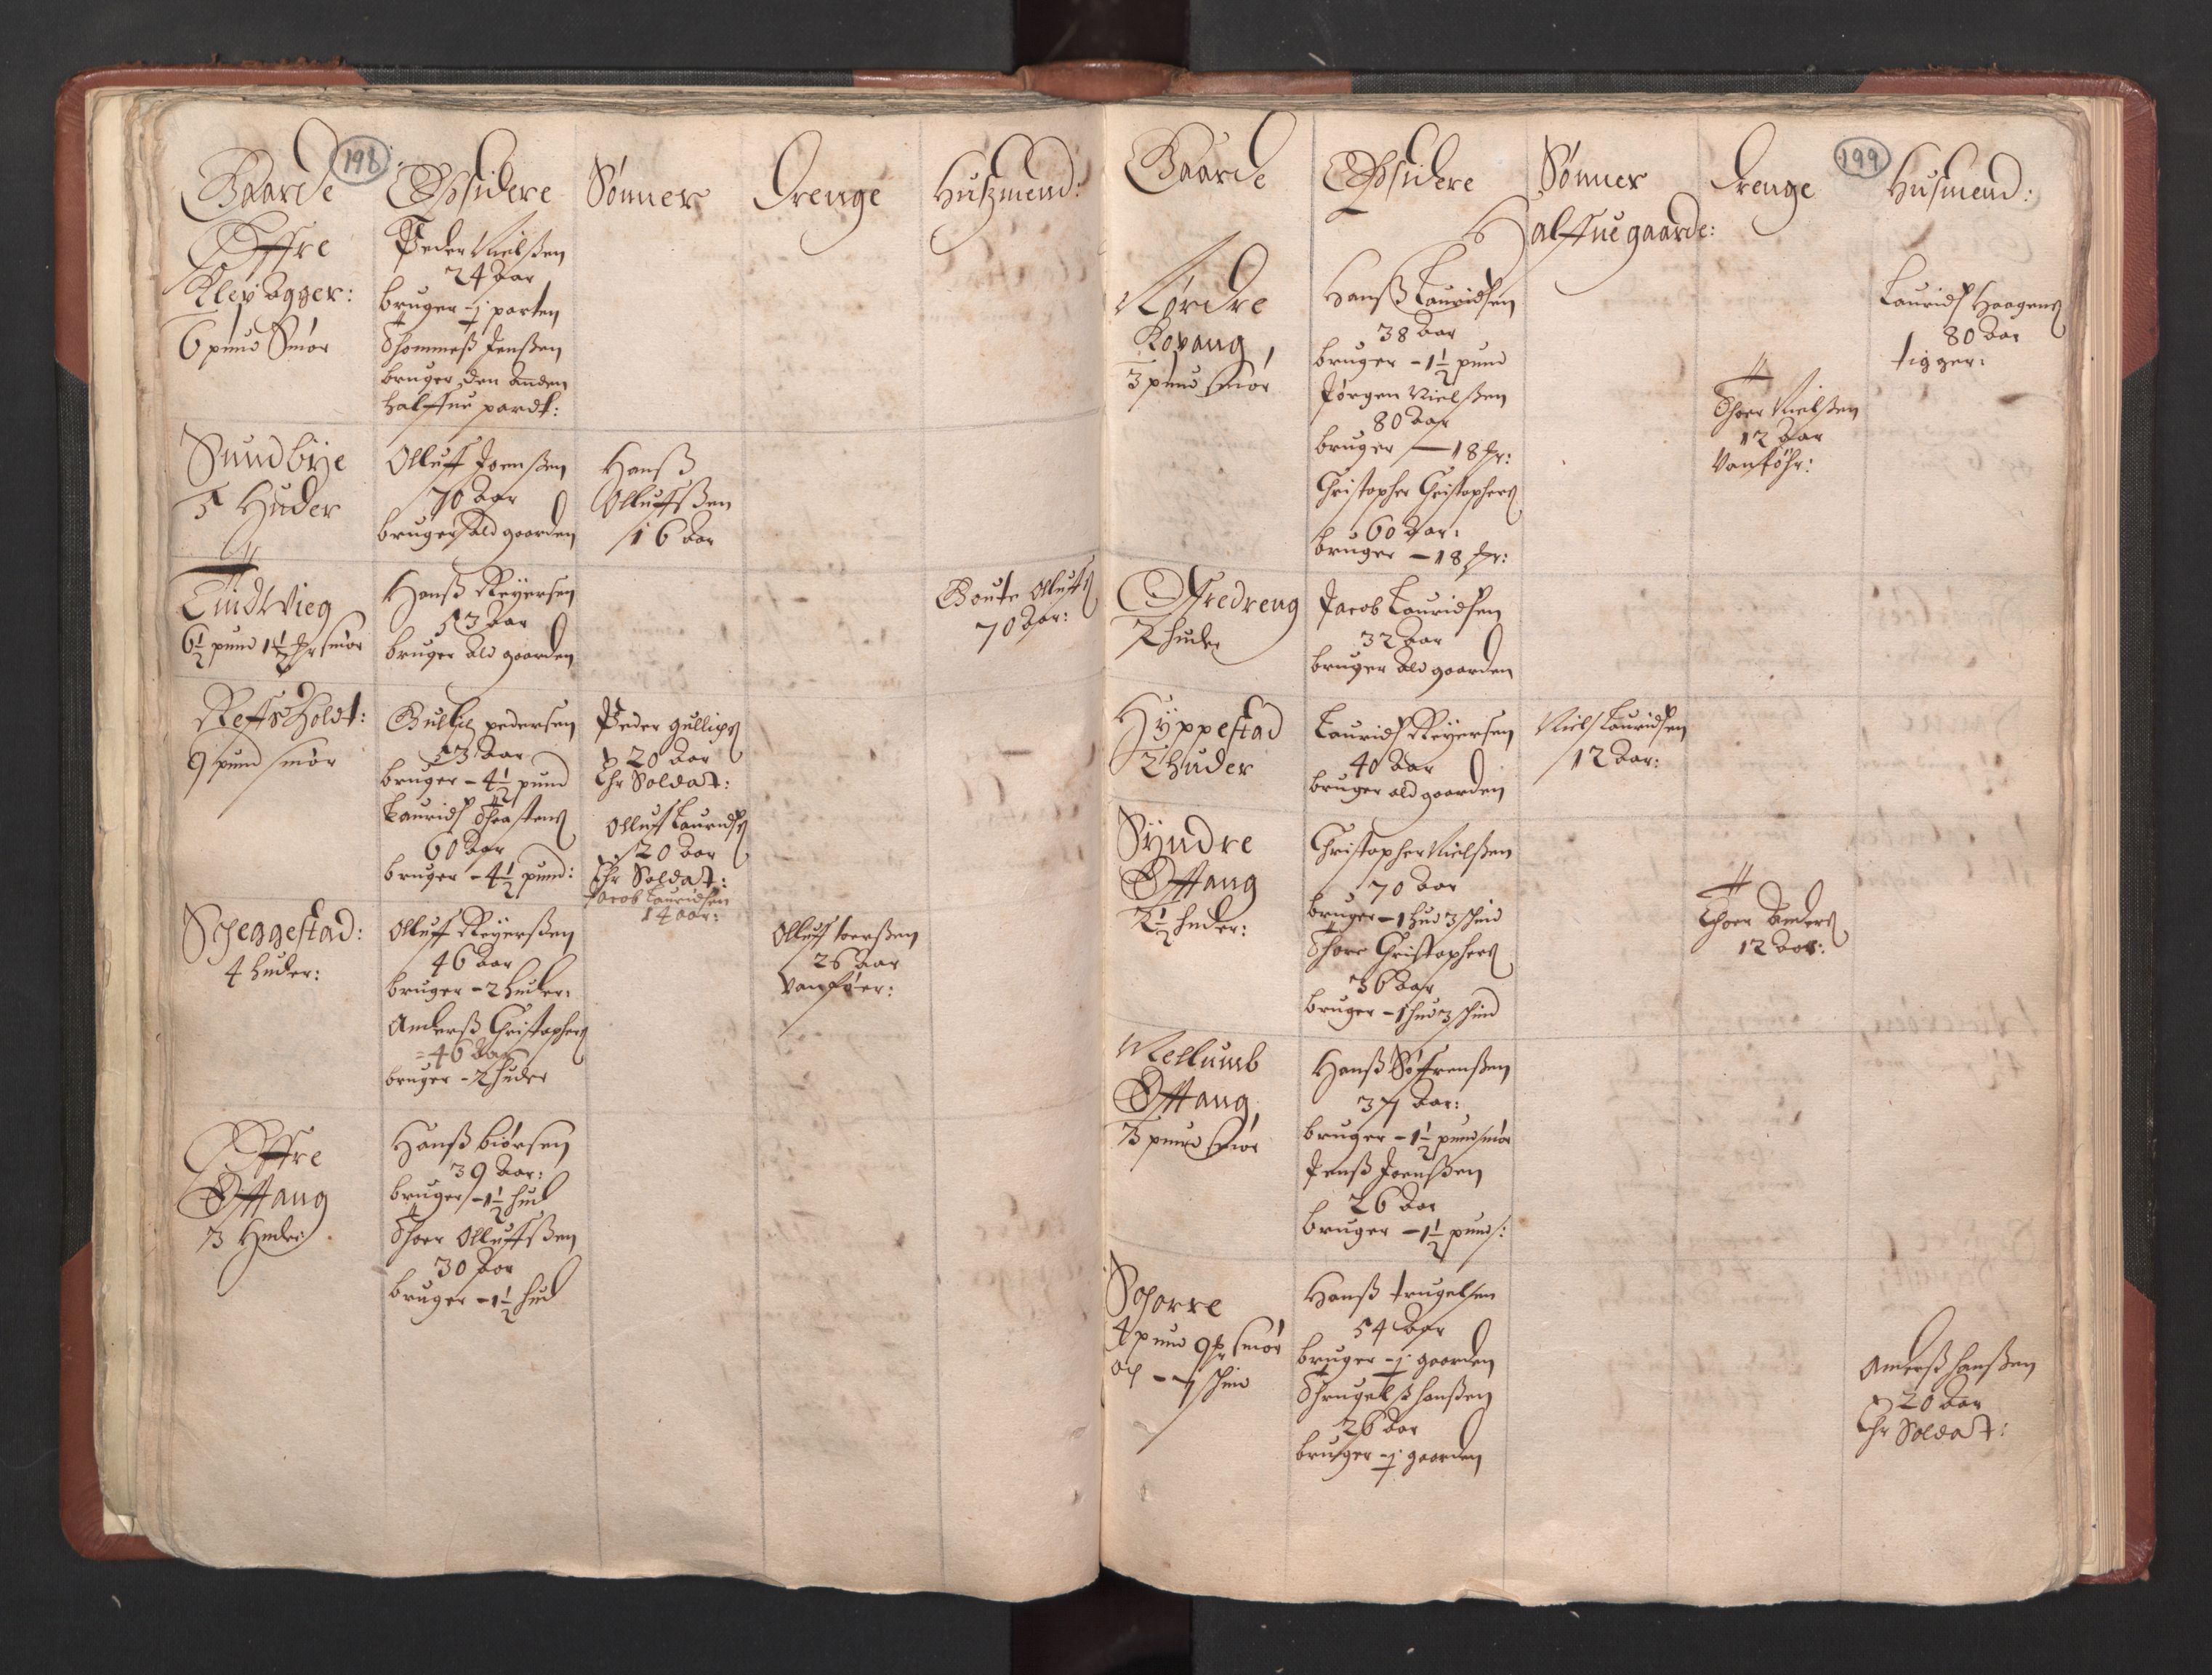 198
Gaarde Opsidere Sønner Drenge Huszmend:
Offre
Klep Agger:
6 pund Smør
Peder Nielsßen
24 Aar
bruger - ½ parten
Thommeß Jensßen
bruger den anden
halffue pardt:
Sundbye
5 Huder
Olluff Joensßen
70 Aar
bruger ald gaarden
Hanß
Olluffsßen
16 Aar
Lindwieg
6½ pund 1½ mr smør
Hanß Reyersen
53 Aar
bruger ald gaarden
Goute Olluffs
70 Aar:
Reffsholdt:
9 pund smør
Gullich pedersen
53 Aar
bruger - 4½ pund
Laurids Thostens
60 Aar
bruger - 4½ pund:
Peder Gullichs
20 Aar
Ehr Soldat:
Olluf Lauridß
20 Aar
Ehr Soldat:
Jacob Lauridsen
14 aar:
Scheggestad:
4 huder:
Olluff Reyersßen
46 Aar
bruger - 2 huder:
Anderß Christophers
46 Aar
bruger - 2 huder
Olluf toersßen
26 Aar
Vanføer:
Offre
Offtang
3 Huder
Hanß biørsen
39 Aar:
bruger - 1½ hud
Thoer Olluffsßen
30 Aar
bruger - 1½ hud
199
Gaarde Opsidere Sønner Drenge Husmend:
Halffue gaarde:
Nørdre
Kopang,
3 pund smør
Hanß Lauridsen
38 Aar
bruger - 1½ pund
Jørgen Nielsßen
80 Aar
bruger - 18 mr:
Christopher Christophers
60 Aar:
bruger - 18 mr:
Thoer Nielsßen
12 Aar
Vanføhr:
Laurids Haagens
80 Aar
tigger:
Offredreng
2 huder
Jacob Lauridsen
32 Aar
bruger ald gaarden
Hyppestad
2 huder
Laurids Reyersen
40 Aar
bruger ald gaarden
Niels Lauridsen
12 Aar:
Syndre
Offtang
2½ huder:
Christopher Nielsßen
70 Aar
bruger - 1 hud 3 schind
Thore Christophers
36 Aar
bruger - 1 hud 3 schind
Thoer Anders
12 Aar:
Mellumb
Offtang,
3 pund smør
Hanß Søfrensßen
37 Aar:
bruger - 1½ pund smør
Jenß Joensßen
26 Aar
bruger - 1½ pund:
Schorre
4 pund 9 mr smør
och - 7 schind
Hanß trugelsen
54 Aar
bruger - ½ gaarden
Thrugelß Hansßen
26 Aar
bruger - ½ gaarden
Anderß Hansßen
20 Aar
Ehr Soldat: